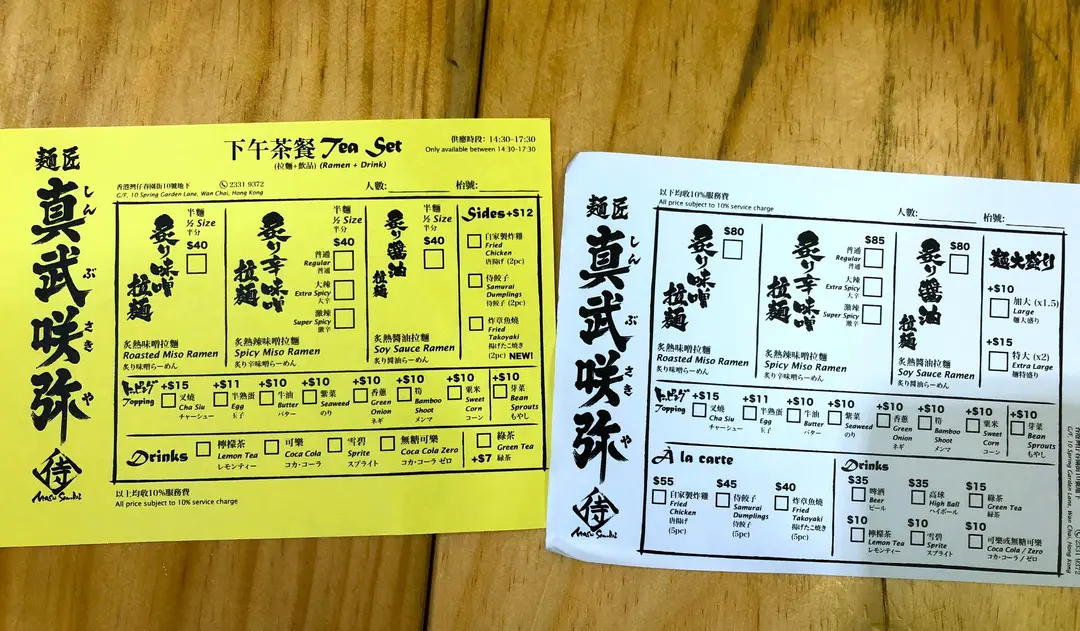 麺匠
真武咲弥
しんぶさきや
侍
Masu Senki
下午茶餐 Tea Set
(拉麵+飲品) (Ramen + Drink)
供應時段: 14:30-17:30
Only available between 14:30-17:30
香港灣仔春園街10號地下 2331 9372
G/F, 10 Spring Garden Lane, Wan Chai, Hong Kong
人數: 枱號:
炙り味噌拉麺
半麵
½ Size
半分
$40
炙熱味噌拉麵
Roasted Miso Ramen
炙り味噌らーめん
炙り辛味噌拉麺
半麵
½ Size
半分
$40
普通
Regular
普通
大辣
Extra Spicy
大辛
激辣
Super Spicy
激辛
炙熱辣味噌拉麵
Spicy Miso Ramen
炙り辛味噌らーめん
炙り醬油拉麺
半麵
½ Size
半分
$40
炙熱醬油拉麵
Soy Sauce Ramen
炙り醬油らーめん
Sides +$12
自家製炸雞
Fried
Chicken
唐揚げ (2pc)
侍餃子
Samurai
Dumplings
侍餃子 (2pc)
炸章魚燒
Fried
Takoyaki
揚げたこ焼き
(2pc) NEW!
トッピング
Topping
+$15
叉燒
Cha Siu
チャーシュー
+$11
半熟蛋
Egg
玉子
+$10
牛油
Butter
バター
+$10
紫菜
Seaweed
のり
+$10
香蔥
Green
Onion
ネギ
+$10
筍
Bamboo
Shoot
メンマ
+$10
粟米
Sweet
Corn
コーン
+$10
芽菜
Bean
Sprouts
もやし
Drinks
檸檬茶
Lemon Tea
レモンティー
可樂
Coca Cola
コカ・コーラ
雪碧
Sprite
スプライト
無糖可樂
Coca Cola Zero
コカ・コーラ ゼロ
綠茶
Green Tea
+$7 緑茶
以上均收10%服務費
All price subject to 10% service charge
麺匠
真武咲弥
しんぶさきや
侍
Masu Senki
以下均收10%服務費
All price subject to 10% service charge
人數: 枱號:
炙り味噌拉麺
$80
炙熱味噌拉麵
Roasted Miso Ramen
炙り味噌らーめん
炙り辛味噌拉麺
$85
普通
Regular
普通
大辣
Extra Spicy
大辛
激辣
Super Spicy
激辛
炙熱辣味噌拉麵
Spicy Miso Ramen
炙り辛味噌らーめん
炙り醬油拉麺
$80
炙熱醬油拉麵
Soy Sauce Ramen
炙り醬油らーめん
麺大盛り
+$10
加大 (x1.5)
Large
麺大盛り
+$15
特大 (x2)
Extra Large
麺特盛り
トッピング
Topping
+$15
叉燒
Cha Siu
チャーシュー
+$11
半熟蛋
Egg
玉子
+$10
牛油
Butter
バター
+$10
紫菜
Seaweed
のり
+$10
香蔥
Green
Onion
ネギ
+$10
筍
Bamboo
Shoot
メンマ
+$10
粟米
Sweet
Corn
コーン
+$10
芽菜
Bean
Sprouts
もやし
À la carte
$55
自家製炸雞
Fried
Chicken
唐揚げ
(5pc)
$45
侍餃子
Samurai
Dumplings
侍餃子
(5pc)
$40
炸章魚燒
Fried
Takoyaki
揚げたこ焼き
(5pc)
Drinks
$35
啤酒
Beer
ビール
$35
高球
High Ball
ハイボール
$15
綠茶
Green Tea
緑茶
$10
檸檬茶
Lemon Tea
レモンティー
$10
雪碧
Sprite
スプライト
$10
可樂或無糖可樂
Coca Cola / Zero
コカ・コーラ / ゼロ
香港灣仔春園街10號地下 2331 9372
G/F, 10 Spring Garden Lane, Wan Chai, Hong Kong